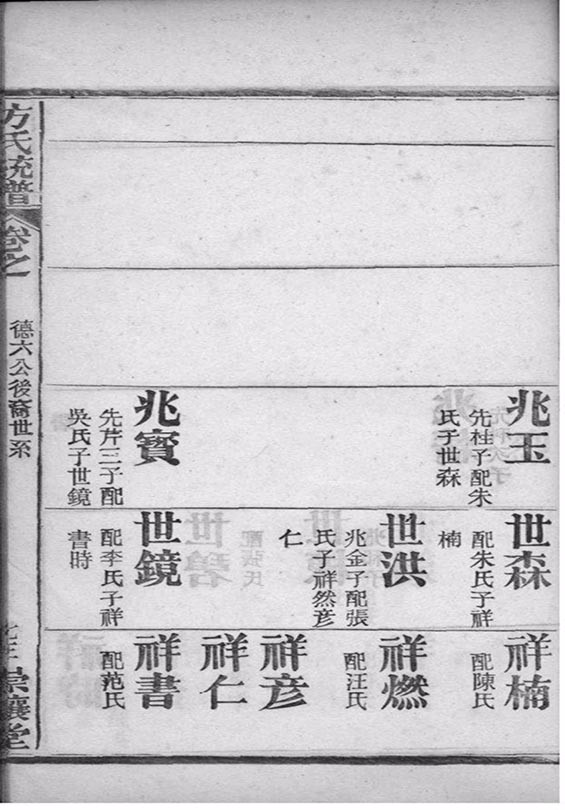 兆玉
先桂子配朱
氏子世森
兆寶
先芹三子配
吳氏子世鏡
世森
配朱氏子祥
楠
世洪
兆金子配張
氏子祥然彥
仁
世鏡
配李氏子祥
書時
祥楠
配陳氏
祥燃
配汪氏
祥彥
祥仁
祥書
配范氏
方氏統譜
卷之
德六公後裔世系
崇讓堂